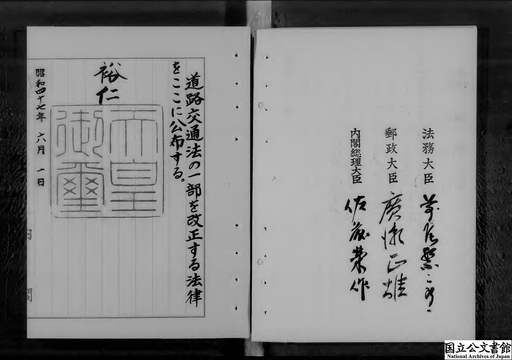 法務大臣 前尾繁三郎
郵政大臣 廣瀬正雄
内閣総理大臣 佐藤榮作
道路交通法の一部を改正する法律
をここに公布する。
裕仁
天皇
御璽
昭和四十七年 六月 一日
内 閣
国立公文書館
National Archives of Japan